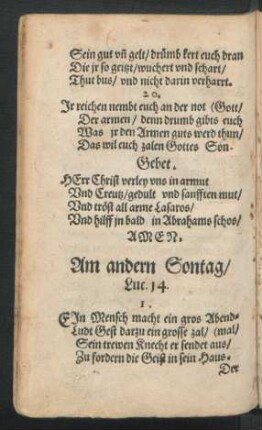 Sein gut vñ gelt/ drůmb kert euch dran
Die jr so geitzt/wuchert vnd schart/
Thut bus/ vnd nicht darin verharrt.
20.
Jr reichen nembt euch an der not (Gott/
Der armen/ denn drumb gibts euch
Was jr den Armen guts werd thun/
Das wil euch zalen Gottes Son.
Gebet.
HErr Christ verley vns in armut
Vnd Creutz/gedult vnd sanfften mut/
Vnd tröst all arme Lasaros/
Vnd hilff jn bald in Abrahams schos/
AMEN.
Am andern Sontag/
Luc. 14
1.
EIn Mensch macht ein gros Abend-
Ludt Gest darzu ein grosse zal/ (mal/
Sein trewen Knecht er sendet aus/
Zu fordern die Geist in sein Haus.
Der